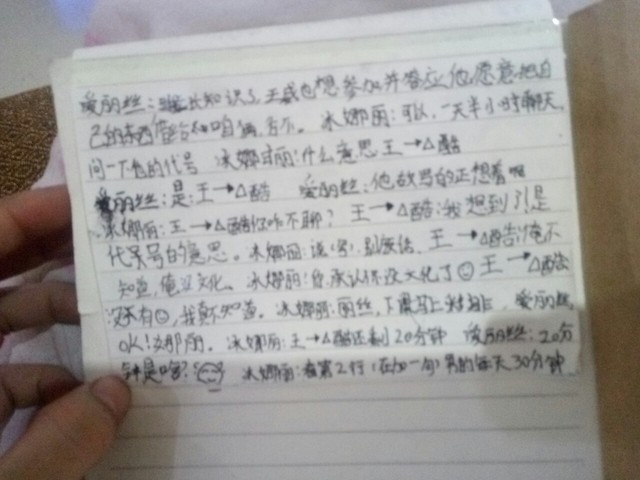 爱丽丝：比知识了，王威也想参加并答应他愿意把自
己的东西借给和咱俩，否不。冰娜丽：可以，一天半小时聊天，
问一下他的代号 冰娜丽：什么意思王→△酷
爱丽丝：是：王→△酷 爱丽丝：他故写的正想着呢
冰娜丽：王→△酷你咋不聊？王→△酷：我想到了！是
代号的意思。冰娜丽：王→△酷告俺不
知道，俺没文化。冰娜丽：你承认你没文化了☺王→△酷
没有☺，我真不知道。冰娜丽：丽丝，下愛爱丽丝：
OK！娜丽。冰娜丽：王→△酷还剩20分钟 爱丽丝：20分
钟是啥？冰娜丽：看第2行（在加一句）男的每天30分钟